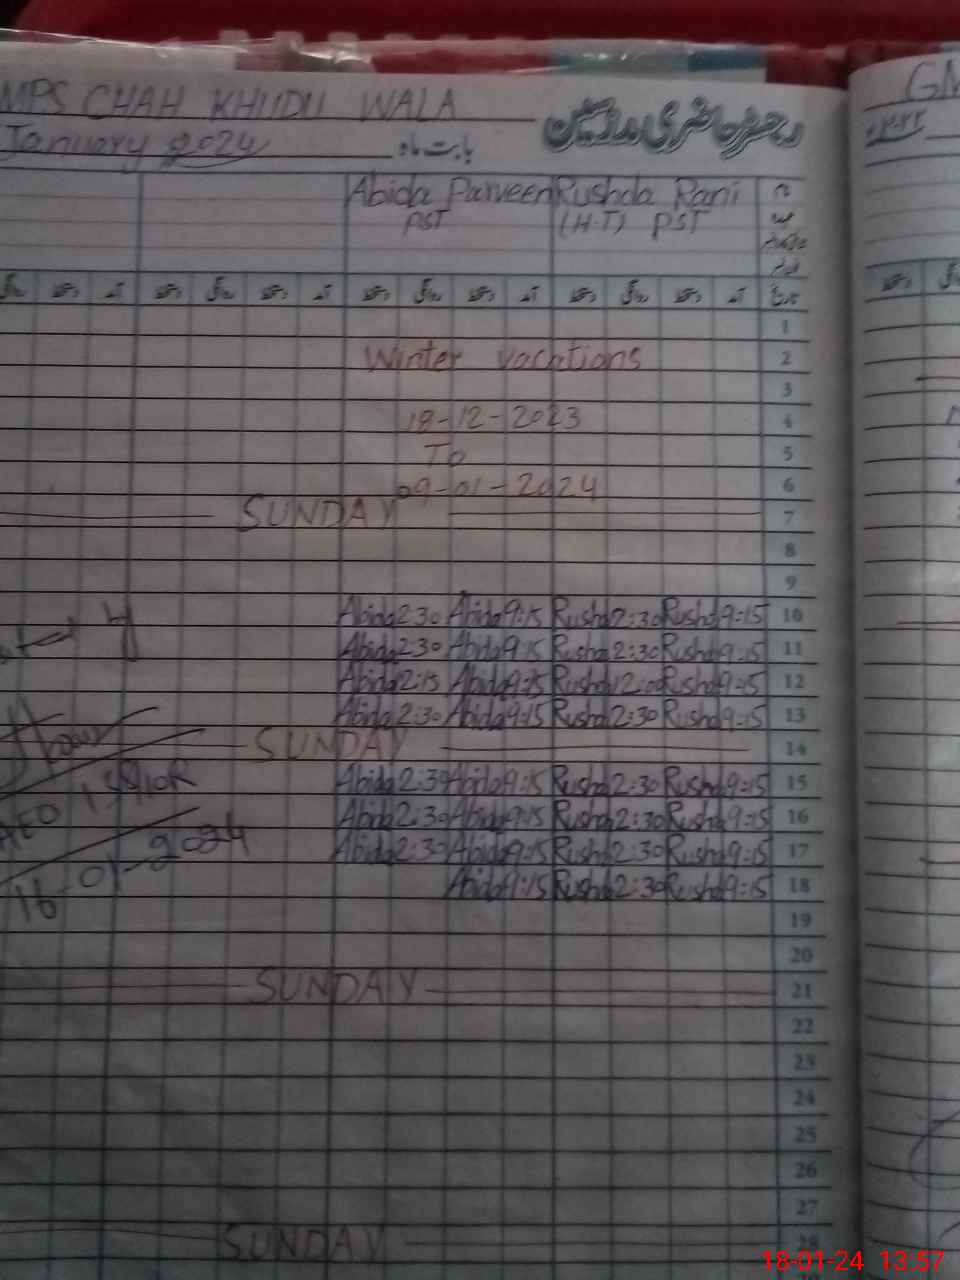 MPS CHAH KHUDU WALA
رجسٹر حاضری مدرسین
January 2024
بابت ماہ
Abida Parveen Rushda Rani
PST (H.T) PST
1
Winter vacations 2
3
18-12-2023 4
To 5
09-01-2024 6
SUNDAY 7
8
9
Abida 2:30 Abida 9:15 Rushda 2:30 Rushda 9:15 10
Abida 2:30 Abida 9:15 Rushda 2:30 Rushda 9:15 11
Abida 2:15 Abida 9:15 Rushda 12:00 Rushda 9:15 12
Abida 2:30 Abida 9:15 Rushda 2:30 Rushda 9:15 13
SUNDAY 14
Abida 2:30 Abida 9:15 Rushda 2:30 Rushda 9:15 15
Abida 2:30 Abida 9:15 Rushda 2:30 Rushda 9:15 16
Abida 2:30 Abida 9:15 Rushda 2:30 Rushda 9:15 17
Abida 9:15 Rushda 2:30 Rushda 9:15 18
AEO
16-01-2024
19
20
SUNDAY 21
22
23
24
25
26
27
SUNDAY 28
GM
18-01-24 13:57